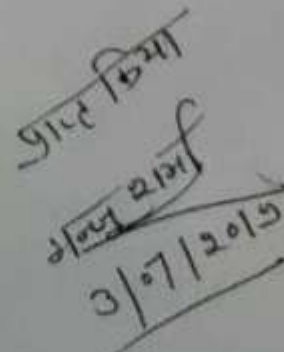 प्राप्त किया
शर्मा
3/07/2019